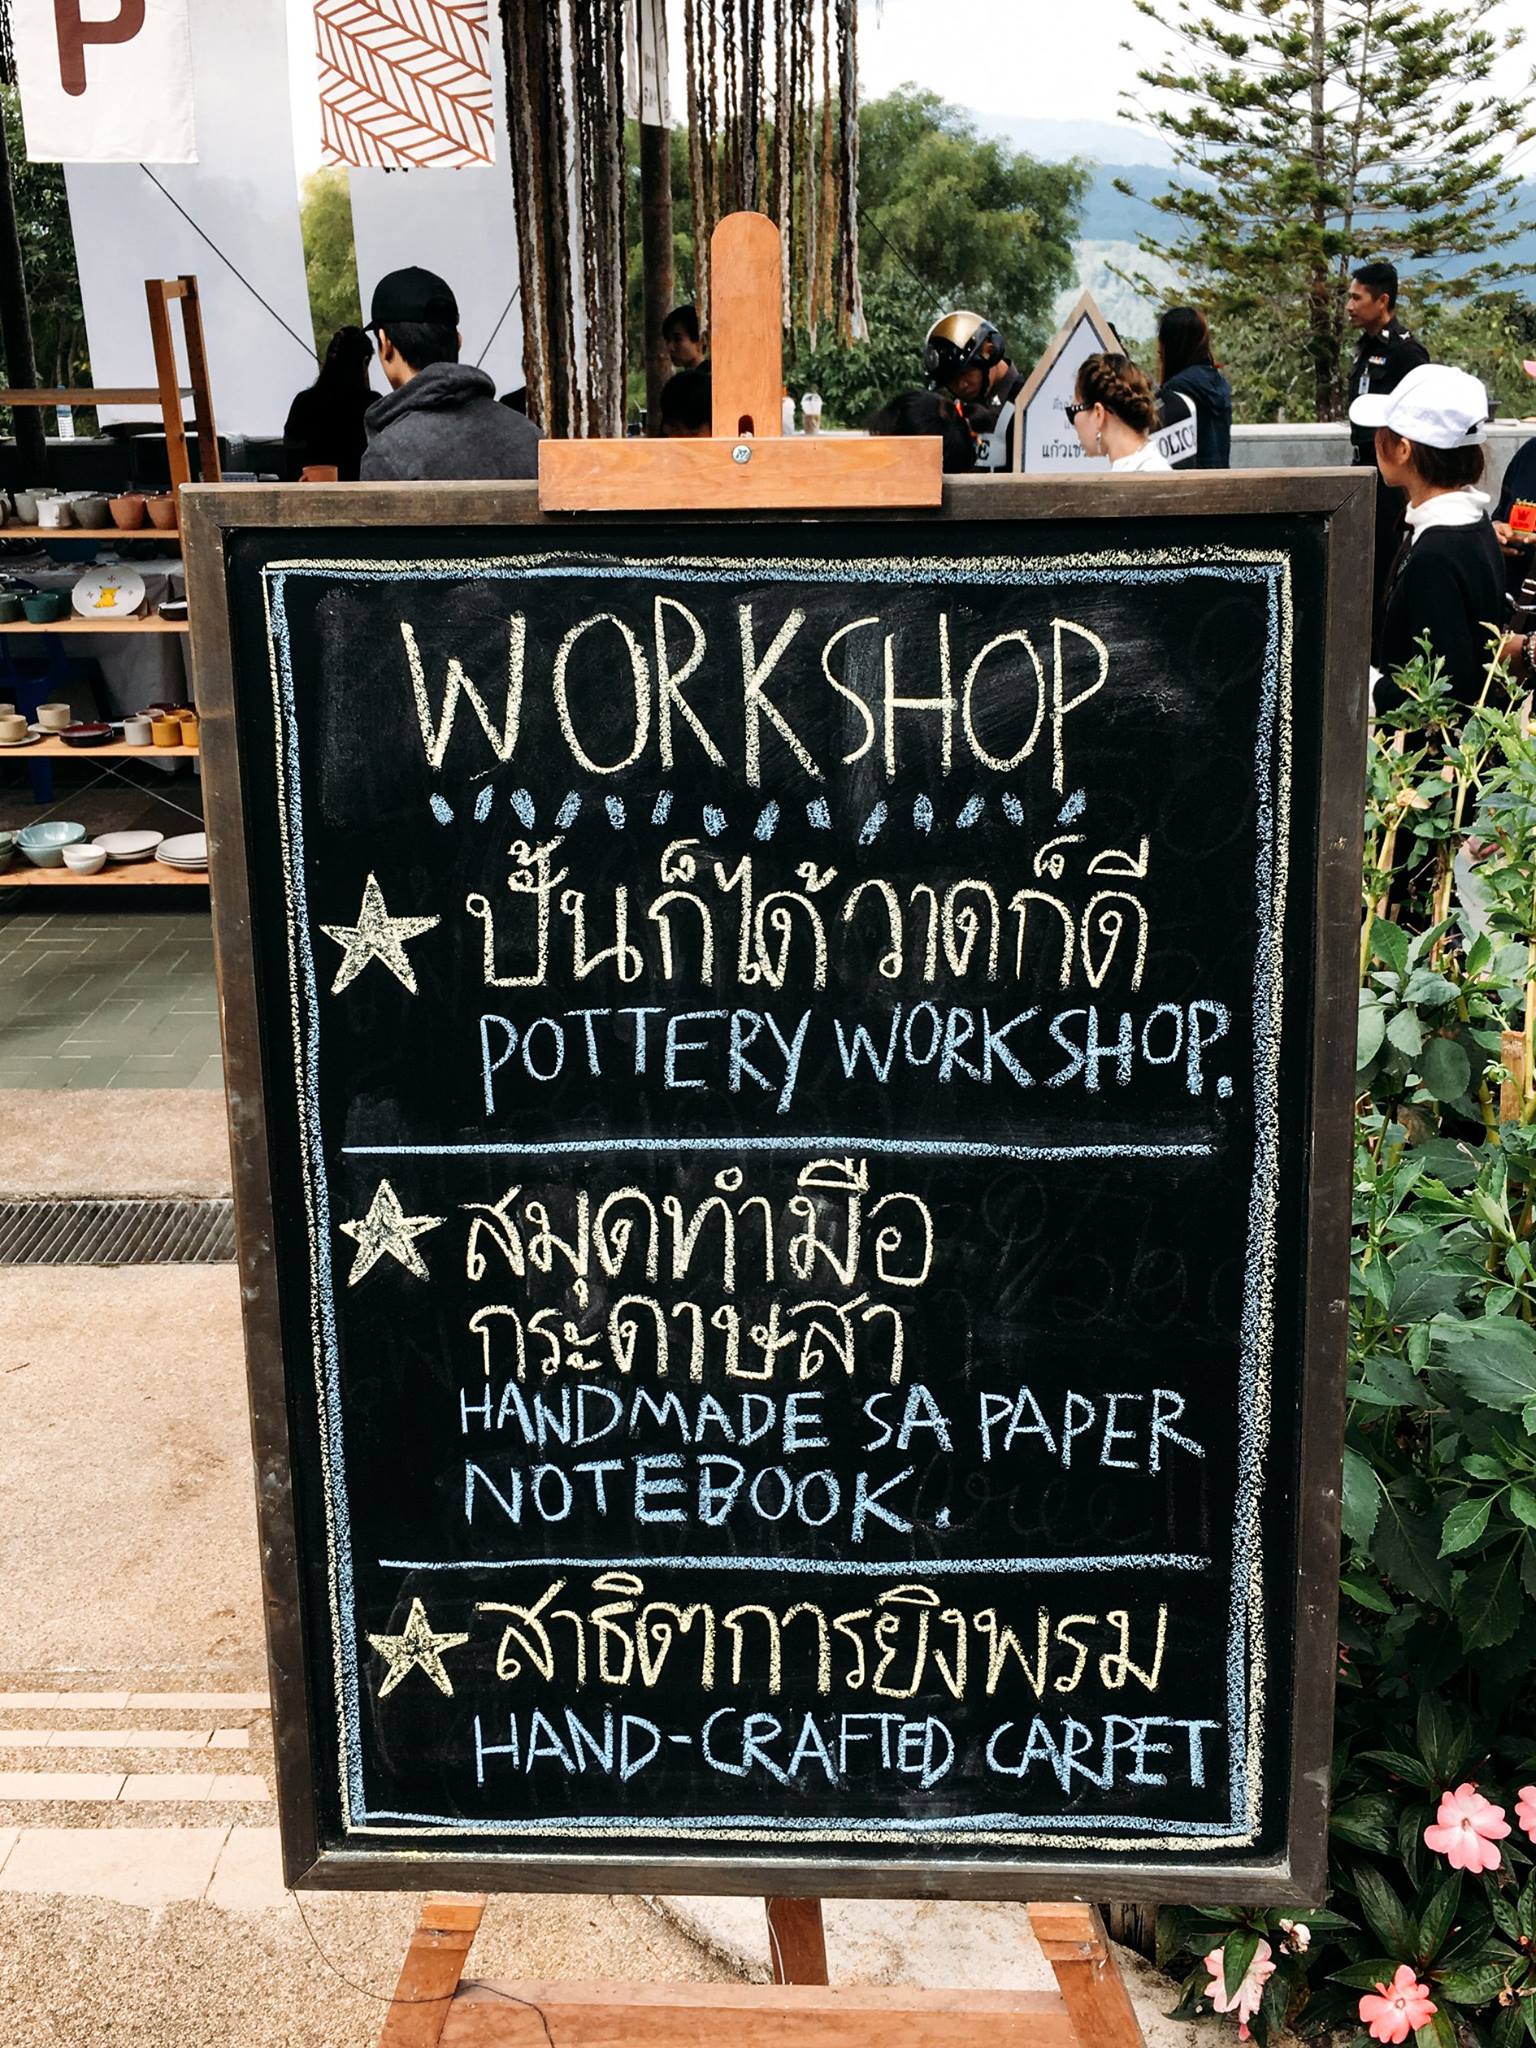 P
แก้วเซ
OLICE
WORKSHOP
ปั้นก็ได้ วาดก็ดี
POTTERY WORKSHOP.
สมุดทำมือ
กระดาษสา
HANDMADE SA PAPER
NOTEBOOK.
สาธิตการยิงพรม
HAND-CRAFTED CARPET